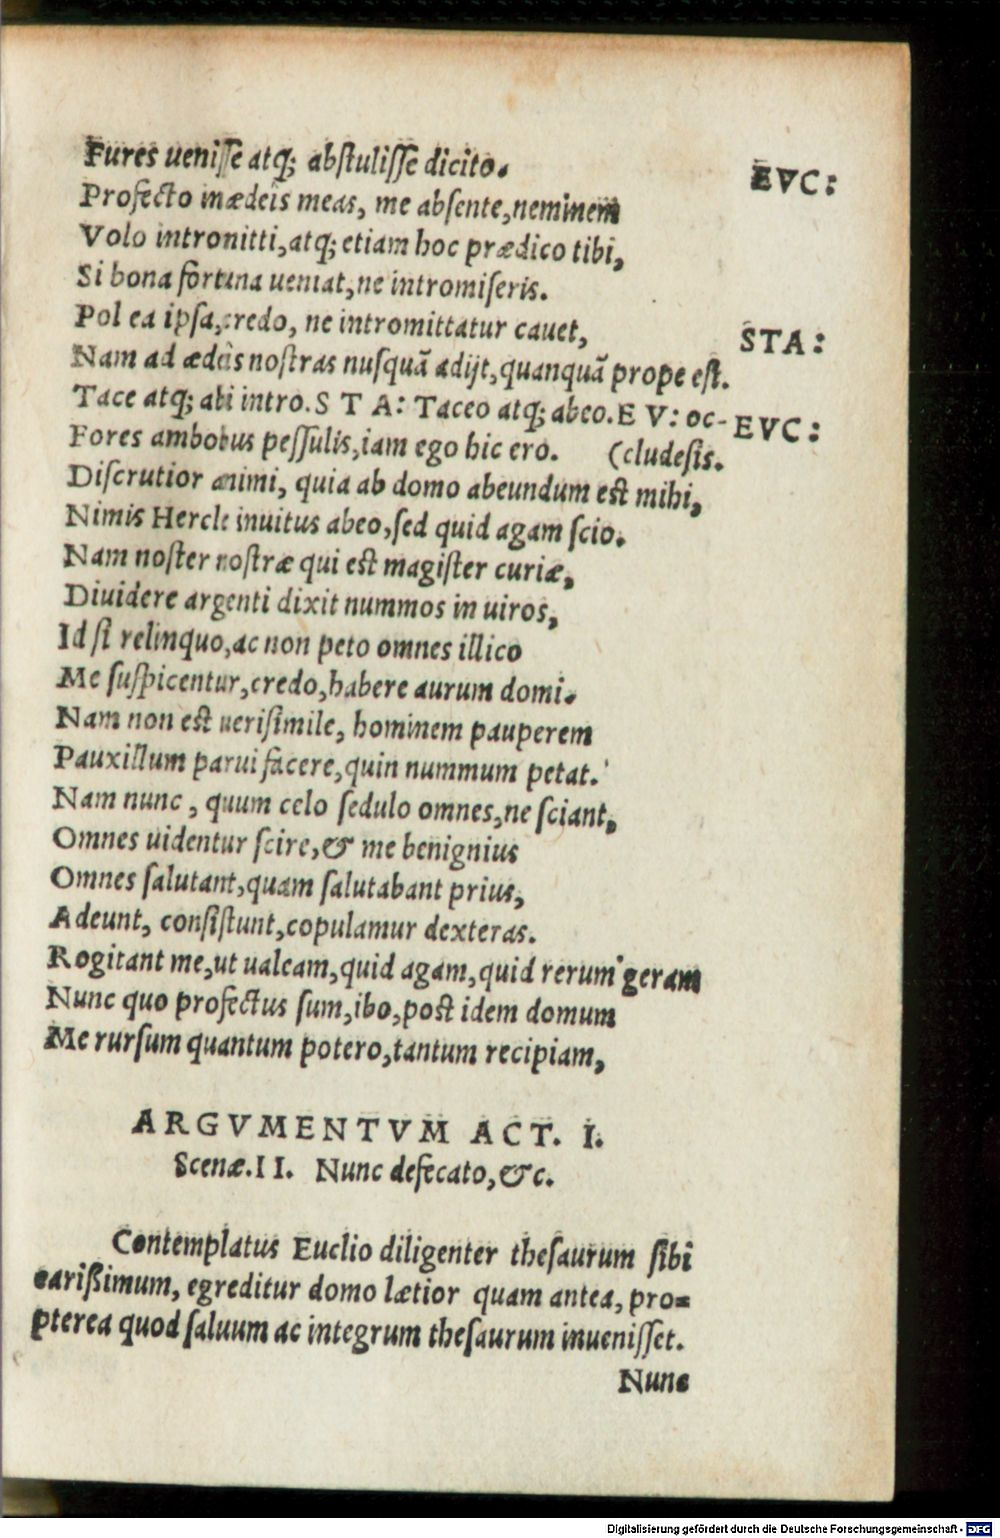 Fures ueniſſe atq; abſtuliſſe dicito.
EVC:
Profecto in ædeis meas, me abſente, neminem
Volo intronitti, atq; etiam hoc prædico tibi,
Si bona fortuna ueniat, ne intromiſeris.
Pol ea ipſa, credo, ne intromittatur cauet,
STA:
Nam ad ædeis noſtras nuſquã adijt, quanquã prope eſt.
Tace atq; abi intro. S T A: Taceo atq; abeo. E V: oc-
EVC:
Fores ambobus peſſulis, iam ego hic ero. (cludeſis.
Diſcrutior animi, quia ab domo abeundum eſt mihi,
Nimis Hercle inuitus abeo, ſed quid agam ſcio.
Nam noſter noſtræ qui eſt magiſter curiæ,
Diuidere argenti dixit nummos in uiros,
Id ſi relinquo, ac non peto omnes illico
Me ſuſpicentur, credo, habere aurum domi.
Nam non eſt ueriſimile, hominem pauperem
Pauxillum parui facere, quin nummum petat.
Nam nunc, quum celo ſedulo omnes, ne ſciant,
Omnes uidentur ſcire, & me benignius
Omnes ſalutant, quam ſalutabant prius,
Adeunt, conſiſtunt, copulamur dexteras.
Rogitant me, ut ualeam, quid agam, quid rerum geram
Nunc quo profectus ſum, ibo, poſt idem domum
Me rurſum quantum potero, tantum recipiam,
ARGVMENTVM ACT. I.
Scenæ. II. Nunc defecato, &c.
Contemplatus Euclio diligenter theſaurum ſibi
carißimum, egreditur domo lætior quam antea, pro=
pterea quod ſaluum ac integrum theſaurum inueniſſet.
Nunc
Digitalisierung gefördert durch die Deutsche Forschungsgemeinschaft - DFG